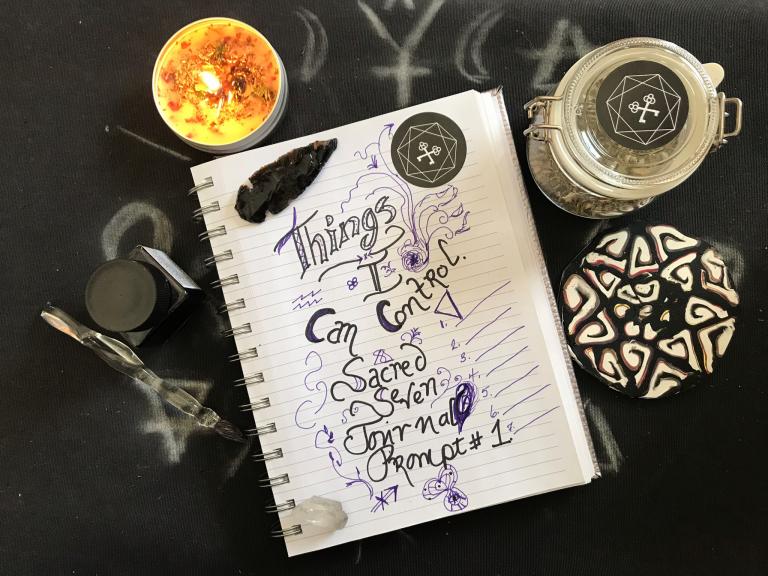 Things
I
Can Control.
Sacred
Seven
Journal
Prompt # 1
1.
2.
3.
4.
5.
6.
7.